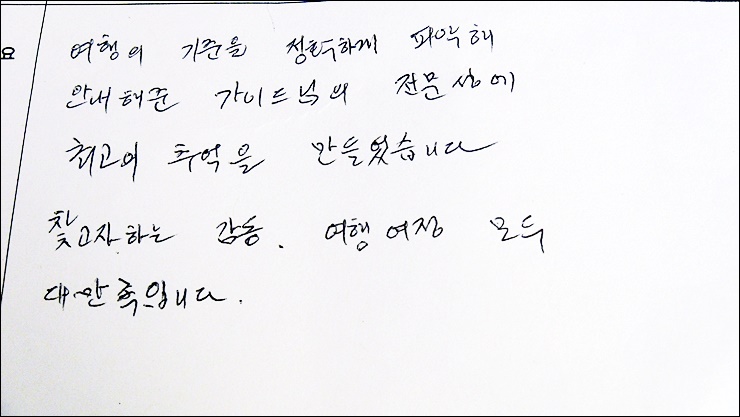 요
여행의 기준을 정확하게 파악해
안내해준 가이드님의 전문성에
최고의 추억을 만들었습니다
찾고자하는 감동. 여행여정 모두
대만족입니다.